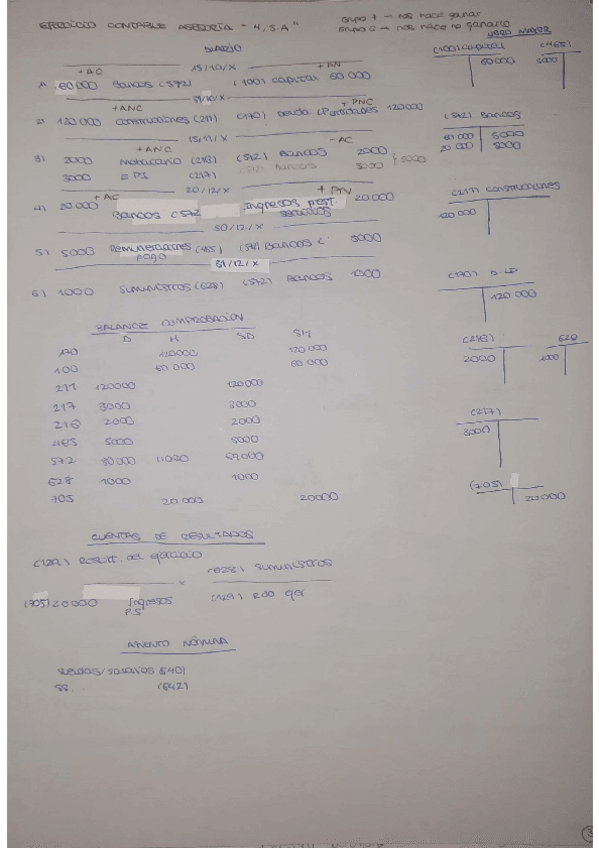 EJERCICIO CONTABLE ASESORÍA - "4, S.A"
Grupo 7 → nos hace ganar
Grupo 6 → nos hace no ganarlo
LIBRO MAYOR
DIARIO
+AC 15/10/X +PN
1) 60000 Bancos (572) (100) capital 60 000
31/10/X
+ANC + PNC
2) 120 000 construcciones (211) (170) Deuda L/P entidades 120000
15/11/X
+ANC -AC
3) 2000 Mobiliario (216) (572) Bancos 2000
3000 EPI (217) (572) Bancos 3000 5000
20/12/X
+AC + PN
4) 20 000 Bancos (572 Ingresos prest. servicios 20 000
30/12/X
5) 5000 Remuneraciones pago (465) (572) Bancos 5000
31/12/X
6) 1000 suministros (628) (572) Bancos 1000
(100) capital
60 000
(465)
5000
(572) Bancos
60 000 5000
20 000 5000
(211) construcciones
120 000
(170) D. LP
120 000
(216)
2000
628
1000
(217)
3000
(705)
20 000
BALANCE COMPROBACIÓN
D H SD SH
170 120000 120 000
100 60 000 60 000
211 120000 120000
217 3000 3000
216 2000 2000
465 5000 5000
572 80000 11000 69000
628 1000 1000
705 20 000 20000
CUENTAS DE RESULTADOS
(129) Result. del ejercicio
x (628) suministros
(705) 20000 Ingresos P.S (129) Rdo ejer
ASIENTO NÓMINA
sueldos/salarios 640)
SS. . (642)
3